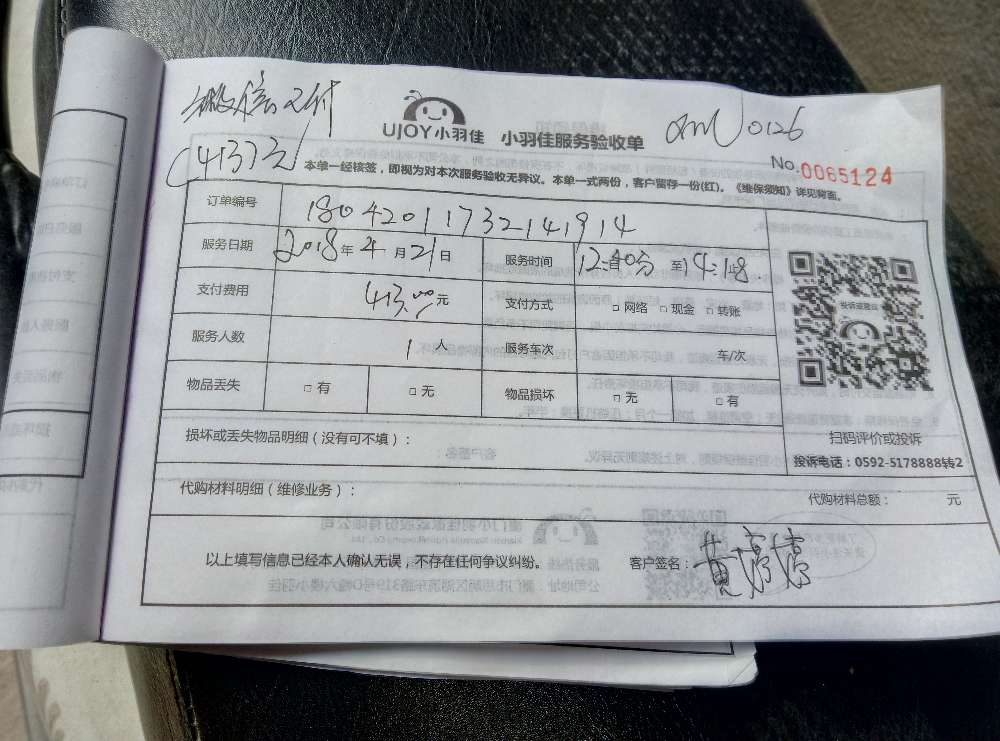 微信支付
(413)元
UJOY小羽佳 小羽佳服务验收单
0126
No.0065124
本单一经核签，即视为对本次服务验收无异议。本单一式两份，客户留存一份(红)。《维保须知》详见背面。
订单编号 18042011732141914
服务日期 2018年4月21日 服务时间 12:40分至14:18
支付费用 413.00元 支付方式 □网络 □现金 □转账
服务人数 1人 服务车次 车/次
物品丢失 □有 □无 物品损坏 □无 □有
损坏或丢失物品明细（没有可不填）：
投诉或建议
扫码评价或投诉
投诉电话：0592-5178888转2
代购材料明细（维修业务）： 代购材料总额： 元
以上填写信息已经本人确认无误，不存在任何争议纠纷。 客户签名：黄婷婷